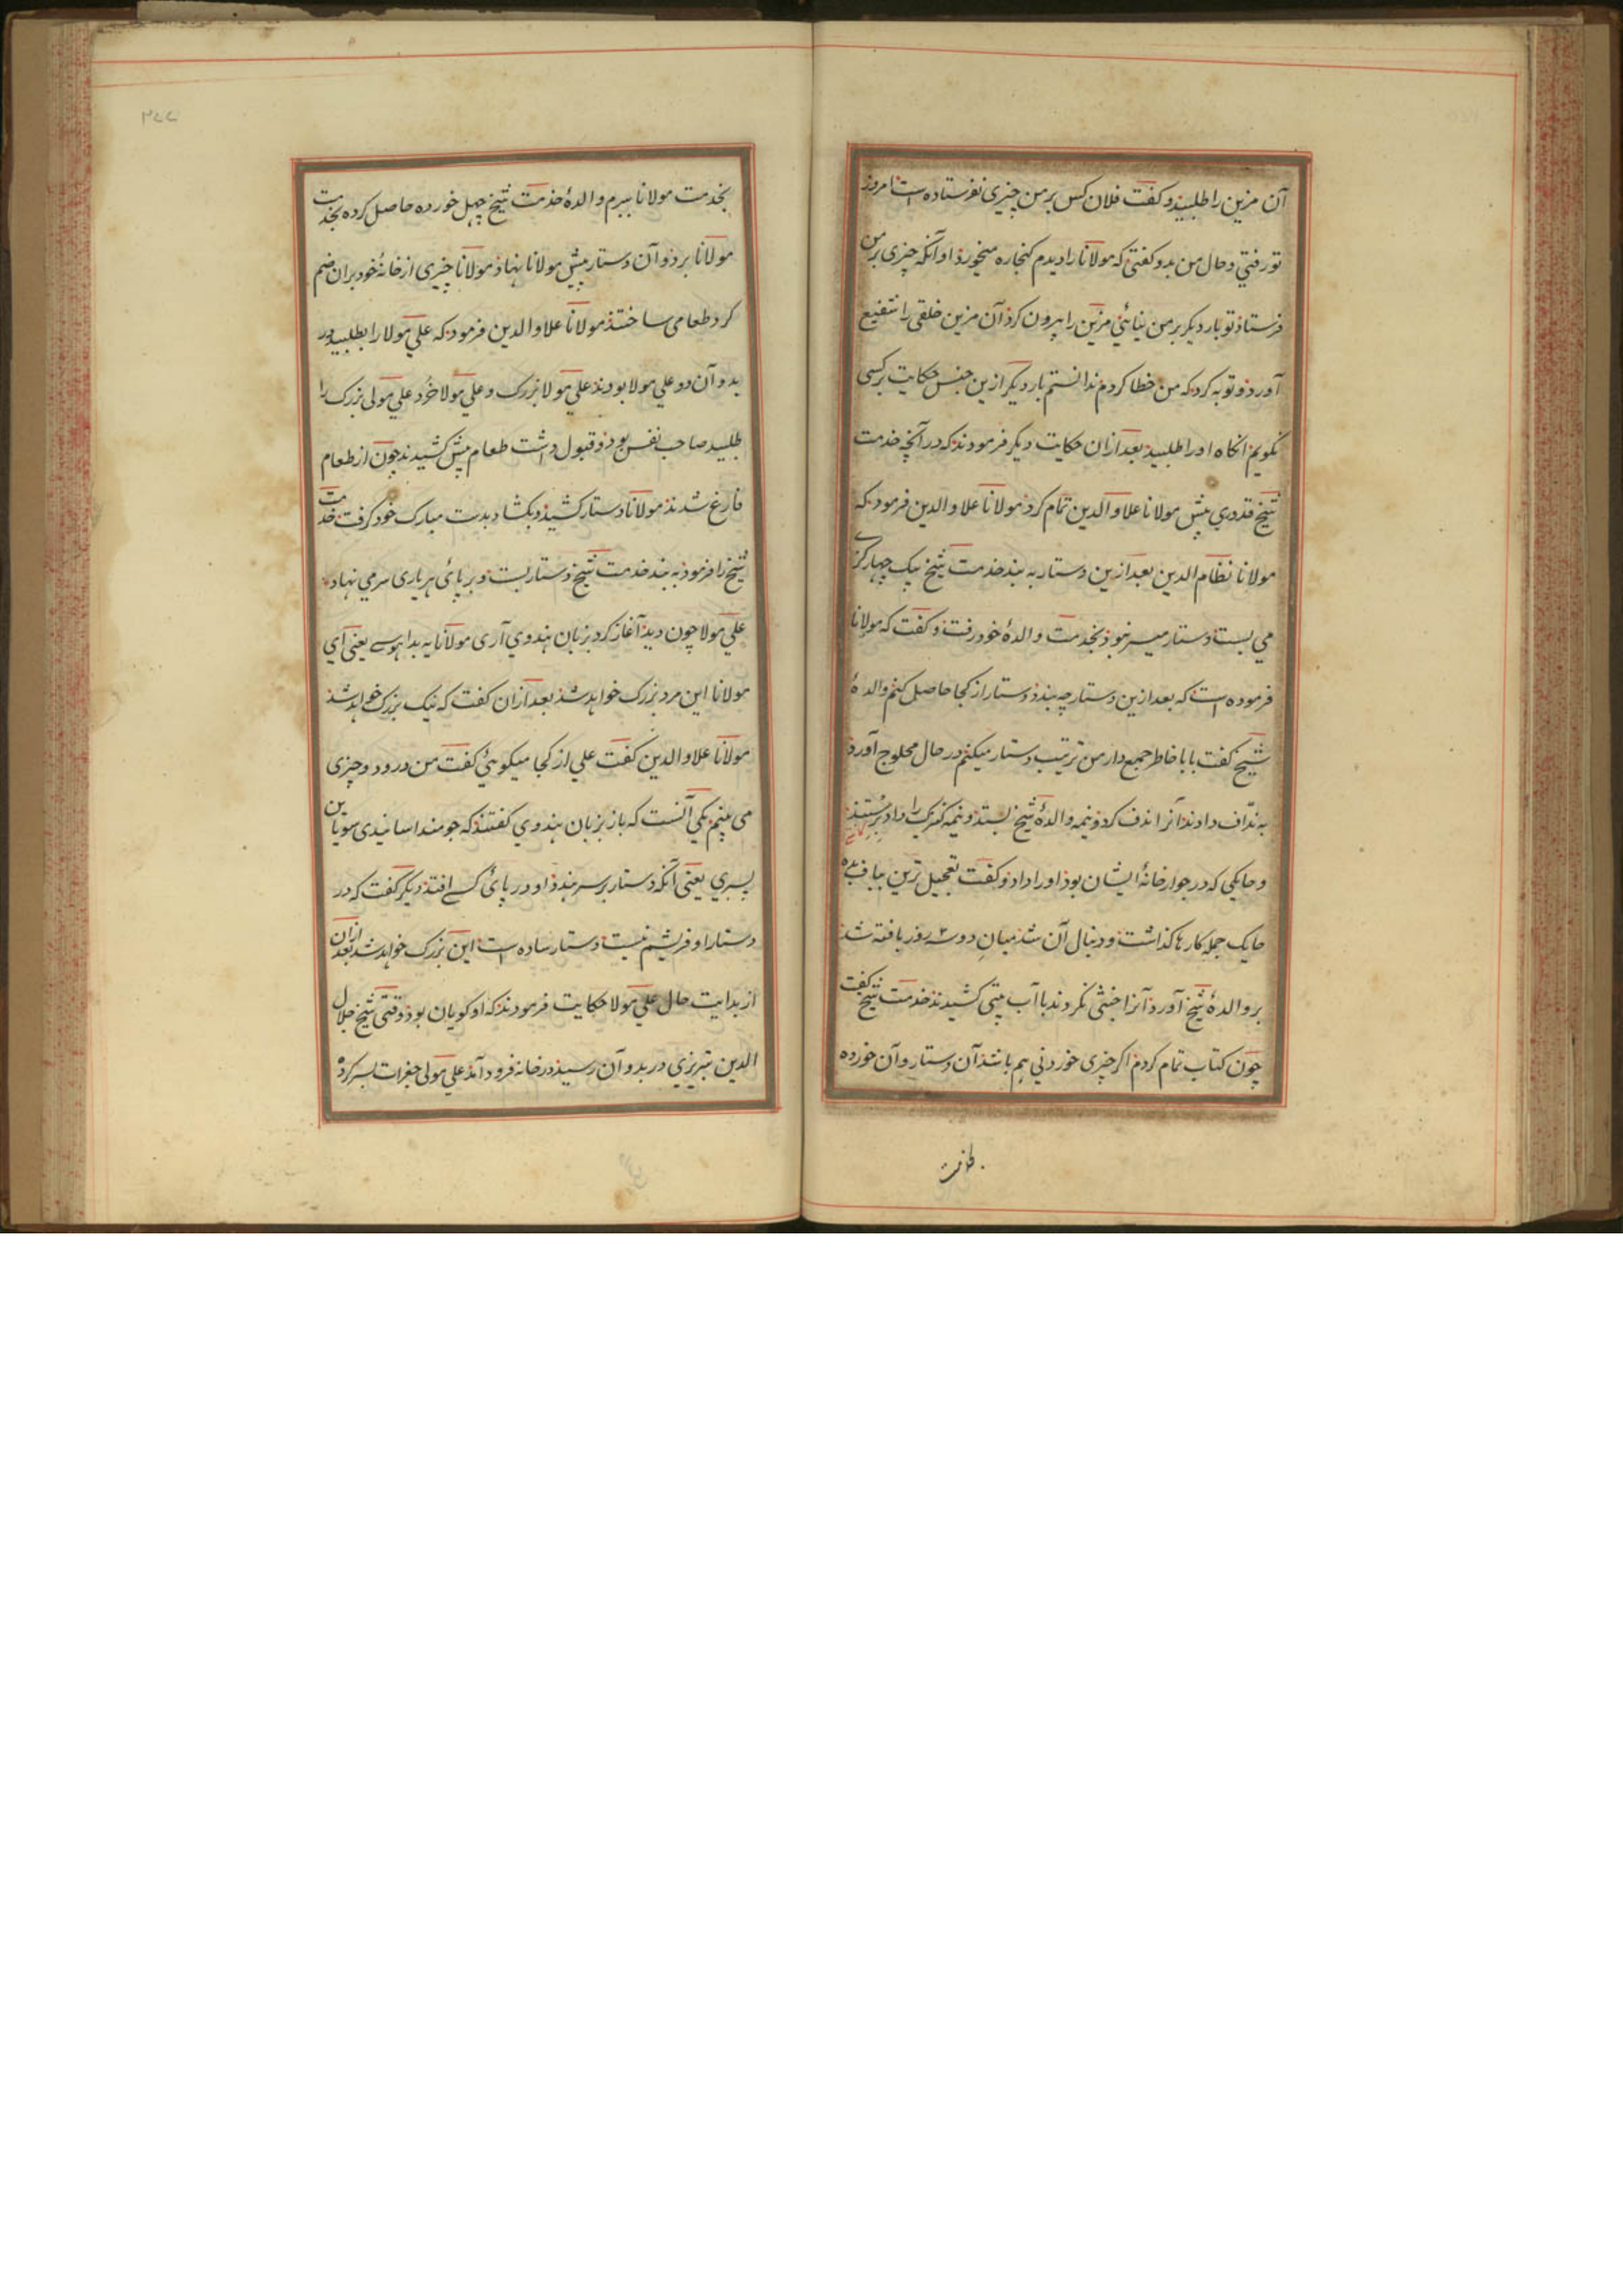 آن مزین را طلبید و کفت فلان کس بر من چیزی نفرستاده است امروز
تو رفتی و حال من بدو کفتی که مولانا را دیدم کنجاره میخورد او آنکه چیزی بر من
فرستاد تو بار دیکر بر من نیائی مزین را بیرون کرد آن مزین خلقی را بتشفیع
آورد و توبه کرد که من خطا کردم ندانستم بار دیکر ازین جنس حکایت بر کسی
نکویم انکاه او را طلبید بعد ازان حکایت دیکر فرمودند که در آنچه خدمت
شیخ قدوری پیش مولانا علاو الدین تمام کرد مولانا علاو الدین فرمود که
مولانا نظام الدین بعد ازین دستار به بند خدمت شیخ یک چهار کزی
می بست دستار میسر نبود بخدمت والدهٔ خود رفت و کفت که مولانا
فرموده است که بعد ازین دستارچه بند دستار از کجا حاصل کنم والدهٔ
شیخ کفت بابا خاطر جمع دار من ترتیب دستار میکنم در حال محلوج آورد
به نداف دادند آنرا ندف کرد و نیمه والدهٔ شیخ بستد و نیمه کنیزک را داد برشتند
و حایکی که در جوار خانهٔ ایشان بود او را داد و کفت تعجیل ترین بباف بده
حایک جمله کارها کذاشت و دنبال آن شد میان دو سه روز بافته شد
بر والدهٔ شیخ آورد آنرا خشی نکردند با آب پتی کشیدند خدمت شیخ کفت
چون کتاب تمام کردم اکر چیزی خوردنی هم باشد آن دستار و آن خورده
بخدمت
بخدمت مولانا ببرم والدهٔ خدمت شیخ چهل خورده حاصل کرده بخدمت
مولانا برد و آن دستار پیش مولانا بنهاد مولانا چیزی از خانهٔ خود بران ضم
کرد طعامی ساختند مولانا علاو الدین فرمود که علی مولا را بطلبید در
بدوآن دو علی مولا بودند علی مولا بزرک و علی مولا خُرد علی مولی بزرک را
طلبید صاحب نفس بود و قبول داشت طعام پیش کشیدند چون از طعام
فارغ شدند مولانا دستار کشید و بکشاد بدست مبارک خود کرفت خدمت
شیخ را فرمود به بند خدمت شیخ دستار بست و بر پائ هر یاری سر می نهاد
علی مولا چون دید آغاز کرد بزبان هندوی آری مولانا یه بدا هوسے یعنی ای
مولانا این مرد بزرک خواهد شد بعد ازان کفت که نیک بزرک خواهد شد
مولانا علاو الدین کفت علی از کجا میکوئی کفت من در و دو چیزی
می بینم یکی آنست که باز بزبان هندوی کفتند که جو منداسا بندی سو پاین
پسری یعنی آنکه دستار بر سر بندد او در پائ کسے افتد دیکر کفت که در
دستار او فریشم نیست دستار ساده است این بزرک خواهد شد بعد ازان
از بدایت حال علی مولا حکایت فرمودند که او کوپان بود وقتی شیخ جلال
الدین تبریزی در بدوآن رسید در خانه فرود آمد علی مولی جغرات بر سر کرده